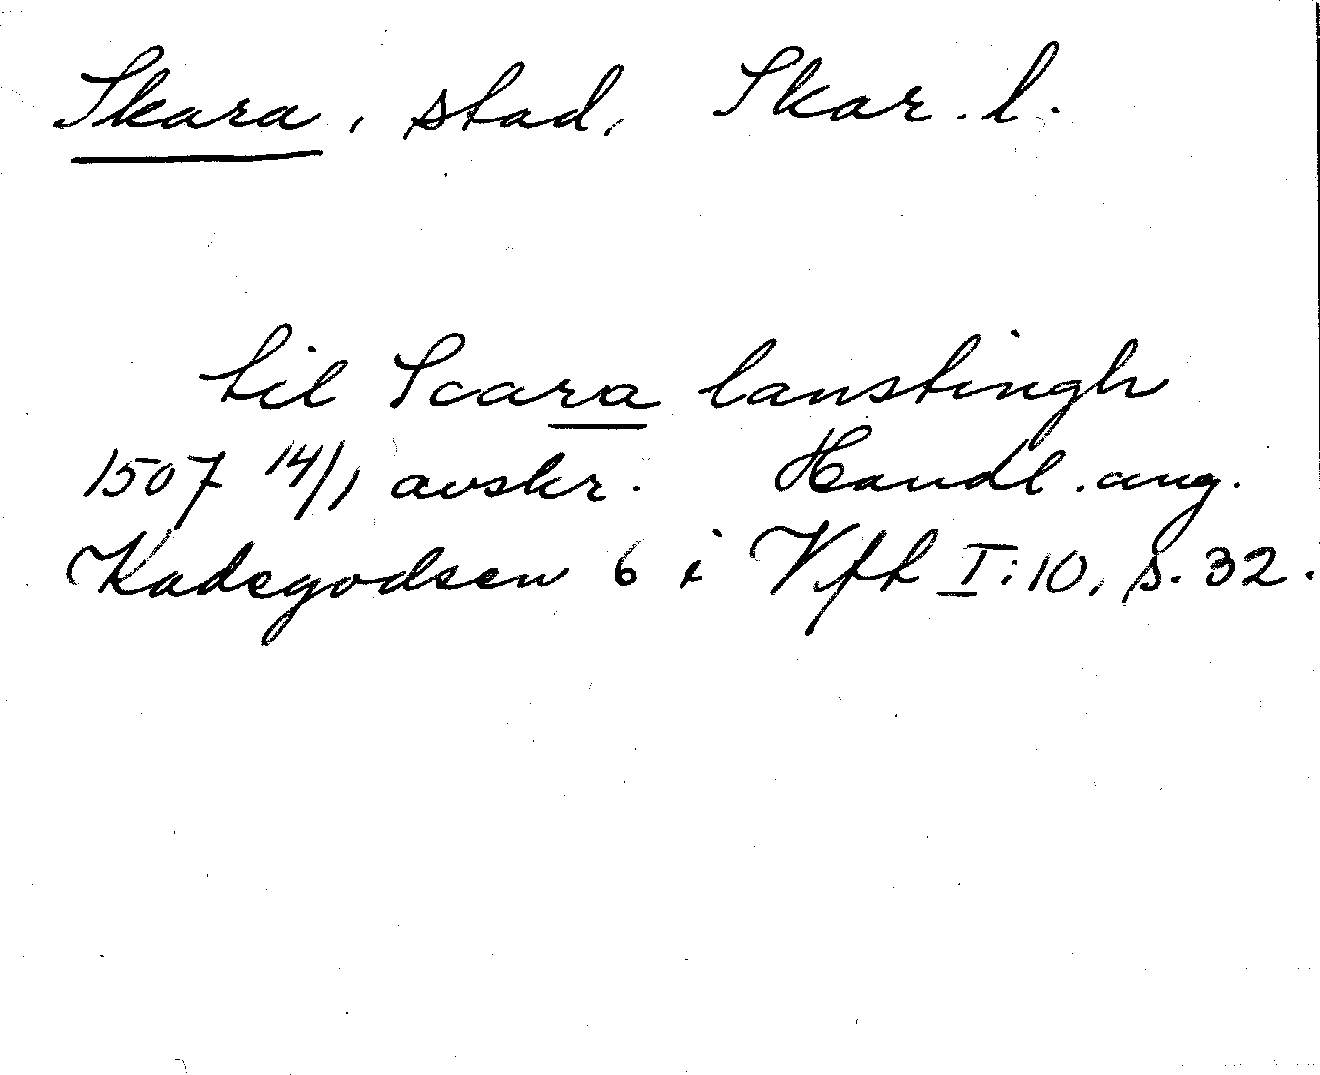 Skara, stad, Skar. l.
til Scara lanstingh
1507 14/1 avskr. Handl. ang.
Kadegodsen 6 i Vfh I:10, s. 32.